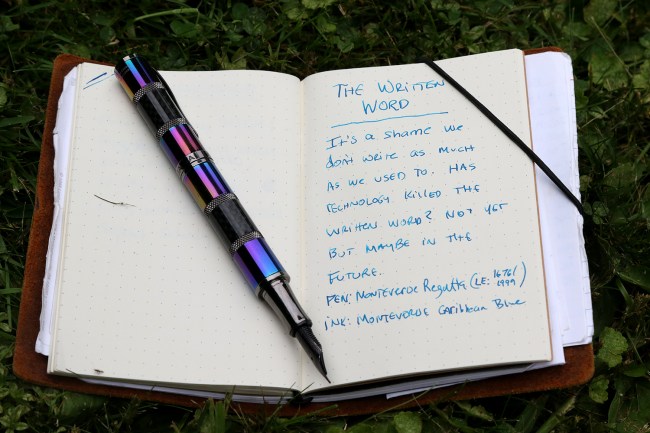 THE WRITTEN
WORD
It's a shame we
don't write as much
as we used to. Has
technology killed the
written word? Not yet
but maybe in the
future.
Pen: Monteverde Regatta (LE: 1676/1999)
Ink: Monteverde Caribbean Blue